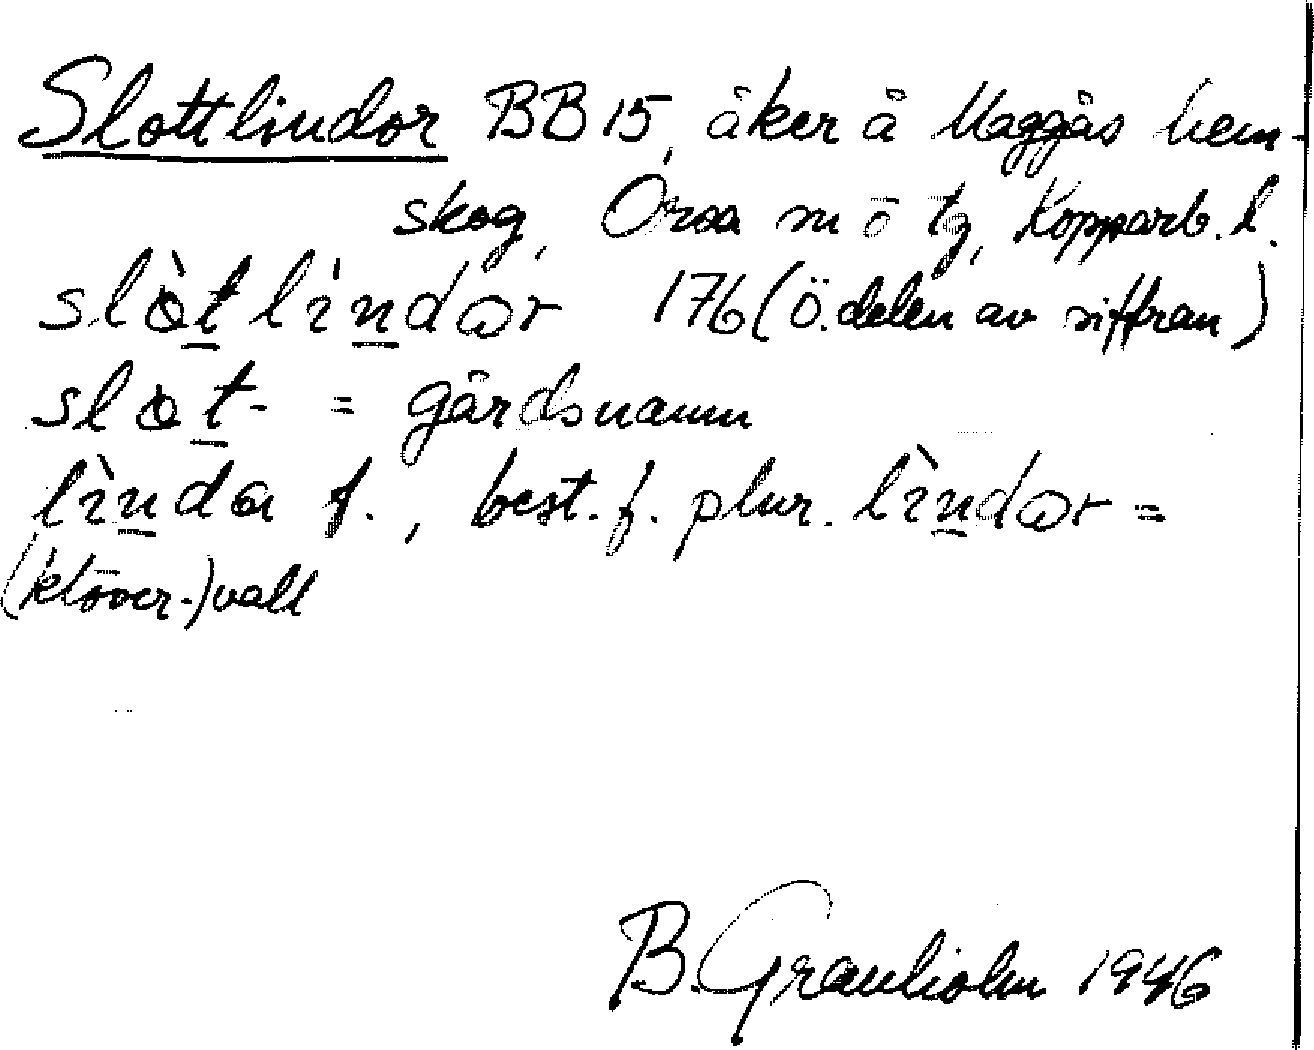 Slottlindor BB 15, åker å Maggås hem-
skog, Orsa sn ö tg, Kopparb. l.
slòtlìndar 176 (Ö. delen av siffran)
slòt- = gårdsnamn
lìnda f., best. f. plur. lìndar =
(klöver-)vall
B. Granholm 1946